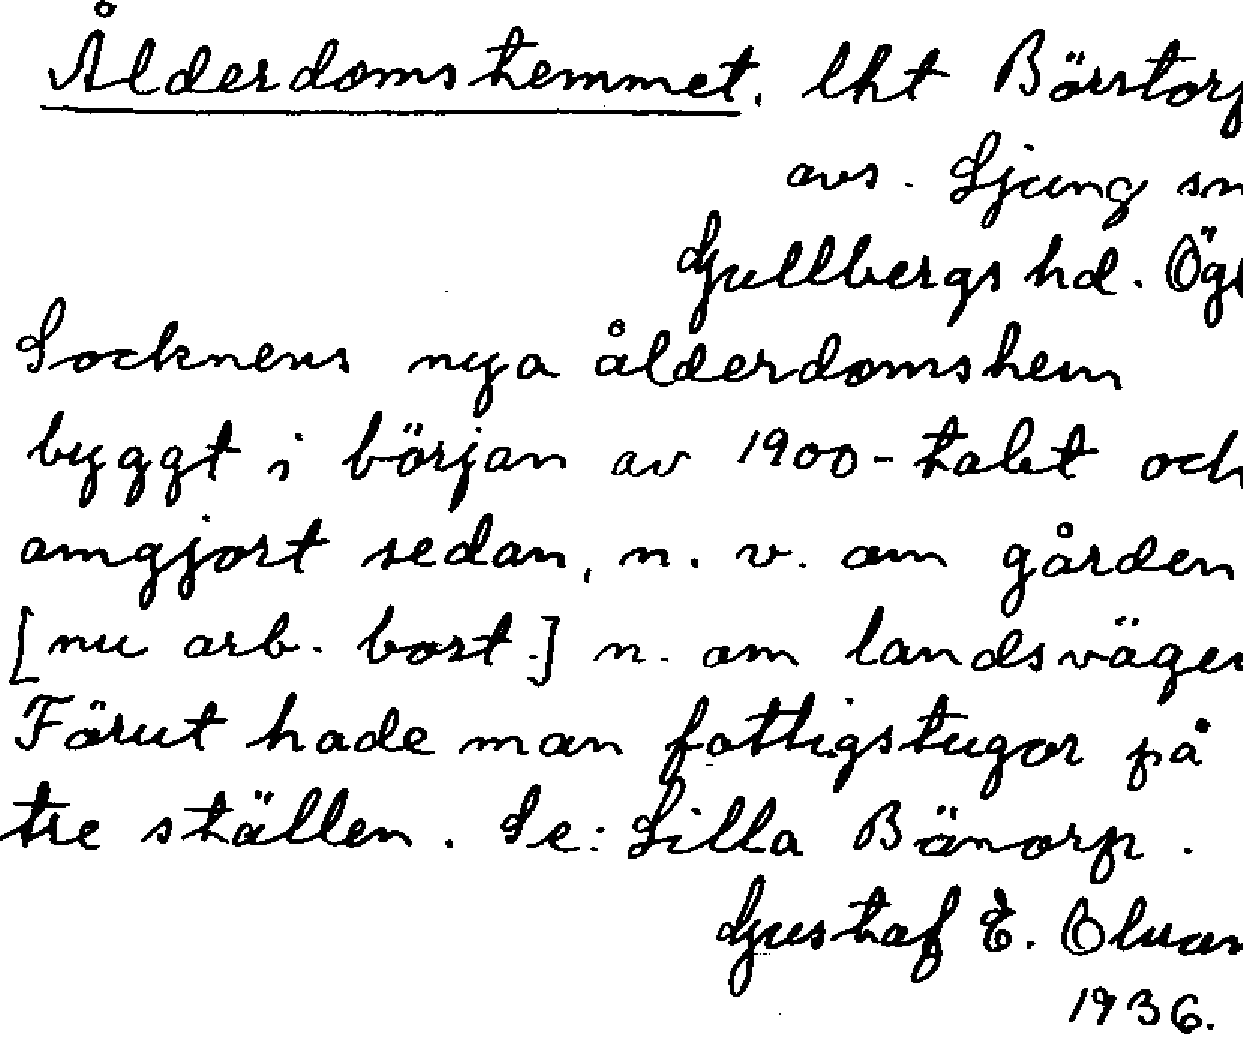 Ålderdomshemmet. lht Börstorp
avs. Ljung sn
Gullbergs hd. Ögl
Socknens nya ålderdomshem
byggt i början av 1900-talet och
omgjort sedan, n. v. om gården
[nu arb. bost.] n. om landsvägen
Förut hade man fattigstugor på
tre ställen. Se: Lilla Bänorp.
Gustaf E.
1936.